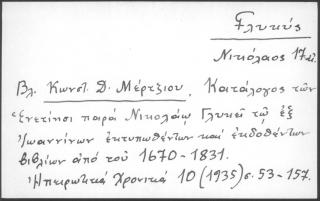 Γλυκύς
Νικόλαος 17αι.
Βλ. Κωνστ. Δ. Μέρτζιου, Κατάλογος τῶν
Ἐνετίησι παρά Νικολάῳ Γλυκεῖ τῷ ἐξ
Ἰωαννίνων ἐκτυπωθέντων καί ἐκδοθέντων
βιβλίων ἀπό τοῦ 1670-1831.
Ἠπειρωτικά Χρονικά 10 (1935) σ. 53-157.